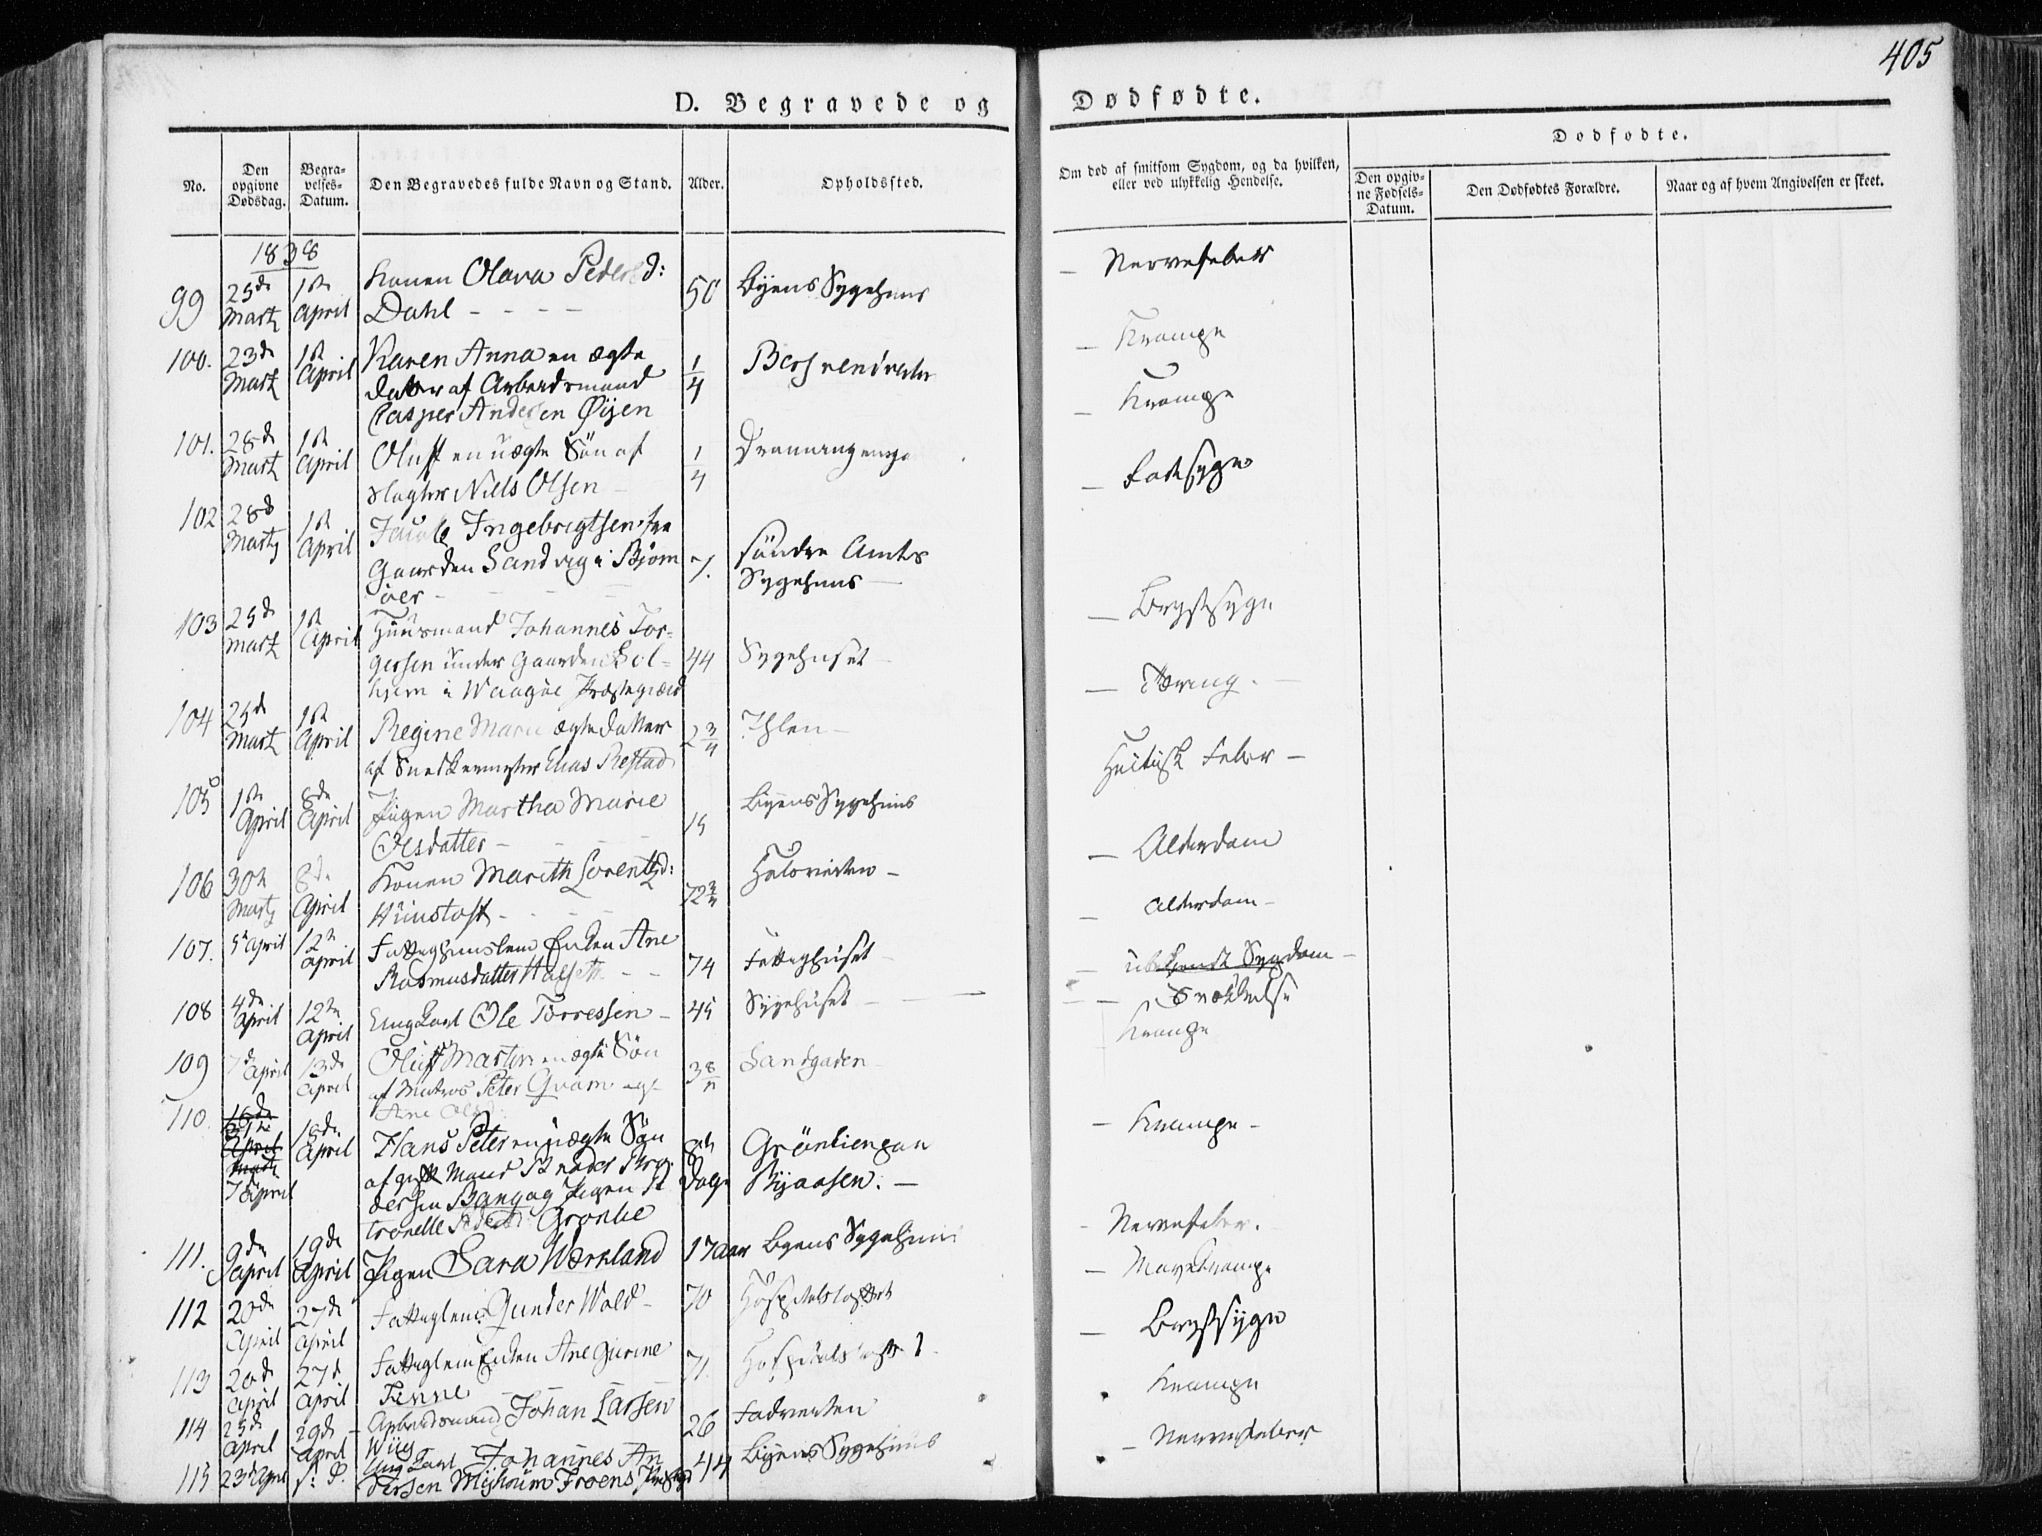 405
D. Begravede og Dødfødte.
No.
Den opgivne Dødsdag.
Begravelses-Datum.
Den Begravedes fulde Navn og Stand.
Alder.
Opholdssted.
Om død af smitsom Sygdom, og da hvilken,
eller ved ulykkelig Hendelse.
Dødfødte.
Den opgivne Fødsels-Datum.
Den Dødfødtes Forældre.
Naar og af hvem Angivelsen er skeet.
1838
99 25de Martz 1ste April Konen Olava Pedersd:
Dahl - - - - 50 Byens Sygehuus — Nervefeber
100. 23de Martz 1ste April Karen Anna en ægte
datter af Arbeidsmand
Casper Andersen Øyen 1/4 — Krampe
101. 28de Martz 1ste April Oluf en uægte Søn af
Slagter Niels Olsen 1/4 — Krampe
102 28de Martz 1ste April Ingebrigtsen fra
Gaarden Sandvig i Bjørn
öer - 7. söndre Amts
Sygehuus — — Fattsyge
103 25de Martz 1ste April Huusmand Johannes Tor-
gersen under Gaarden Sol-
hjem i Waagøe Præstegield 44 Sygehuset — Brystsyge
104 25de Martz 1ste April Regine Marie ægte datter
af Snedkermester Elias Restad 2 3/4 Ihlen — — Tæring.
105 1ste April 8de April Pigen Martha Marie
Olsdatter — 15 Byens Sygehuus Feber —
106 30te Martz 8de April Konen Marith Lorentzd:
72 3/4 — Alderdom
107. 5te April 12te April Fattighuuslem Enken Ane
Rasmusdatter Halseth — 74 Fattighuset — Alderdom —
108 4de April 12te April Ungkarl Ole Torressen — 45 Sygehuset — ubekjendt Sygdom —
109 7de April 13de April Oluf Martin en ægte Søn
af Matros Peter Qvam og
Ane Olsd 3 8/12 Sandgaden Krampe
110. 16de April 7de April 18de April Hans Peter en uægte Søn
af gift Mand
dersen Bangog Pigen Pe
tronelle Pedersd: Grønlie 8te Dage Grönlien paa
Byaasen. — — Krampe —
111. 9de April 19de April Pigen Sara Værkland 17 aar Byens Sygehuus - Nervefeber.
112 20de April 27de April Fattiglem Gunder Wold — 70 Hospitalsløkket — Mavekrampe
113 20de April 27de April Fattiglem Enken Ane Gurine
Finne 71. — Brystsyge
114 25de April 29de April Arbeidsmand Johan Larsen
Wiig 26 Krampe
115 23de April s: D. Ungkarl Johannes An
dersen 44 Byens Sygehuus — Nervefeber